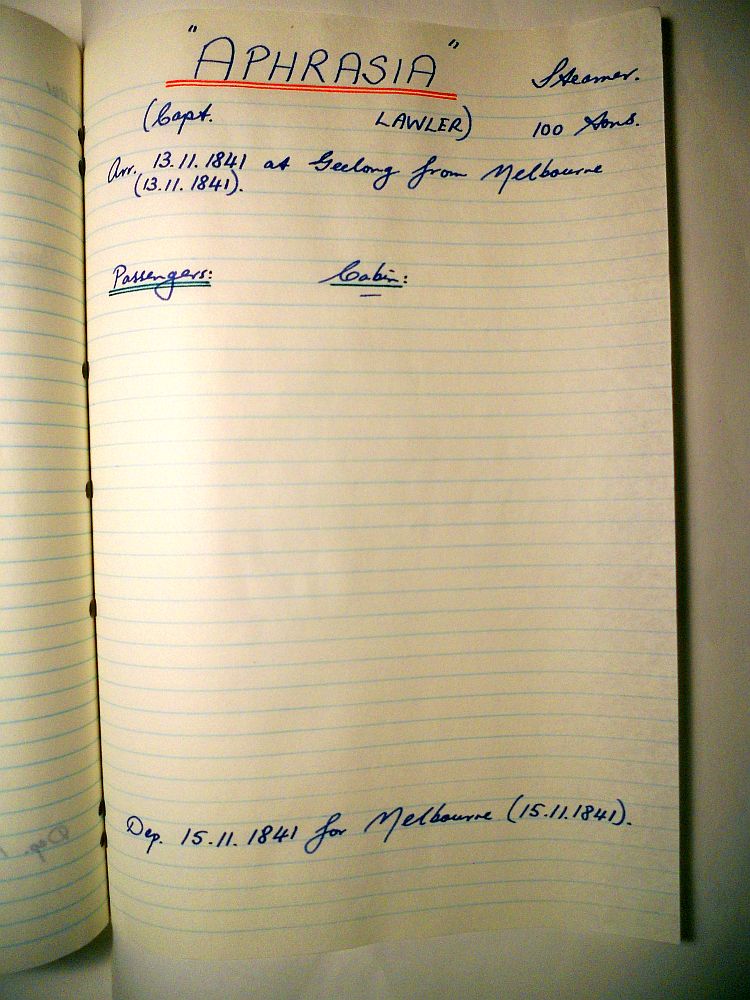 "APHRASIA" Steamer.
(Capt. LAWLER) 100 tons.
Arr. 13.11.1841 at Geelong from Melbourne
(13.11.1841).
Passengers: Cabin:
Dep. 15.11.1841 for Melbourne (15.11.1841).